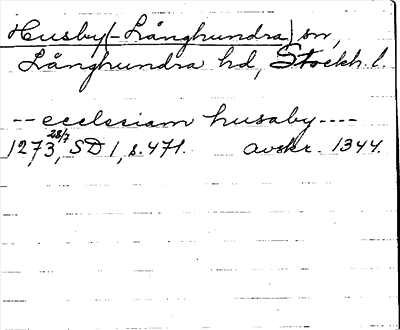 Husby(-Långhundra) sn,
Långhundra hd, Stockh. l.
-- ecclesiam husaby ----
1273 28/7, SD 1, s. 471. avskr. 1344.